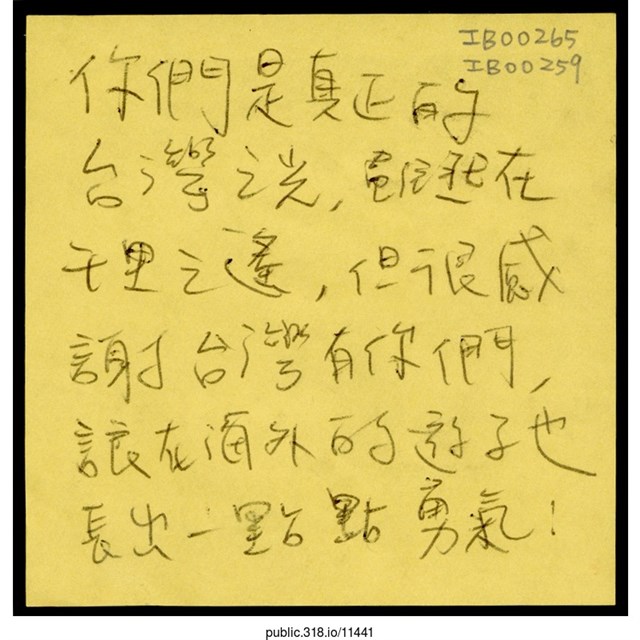 IB00265
IB00259
你們是真正的
台灣之光,雖遠在
千里之遙,但很感
謝台灣有你們,
讓在海外的遊子也
長出一點點勇氣!
public.318.io/11441